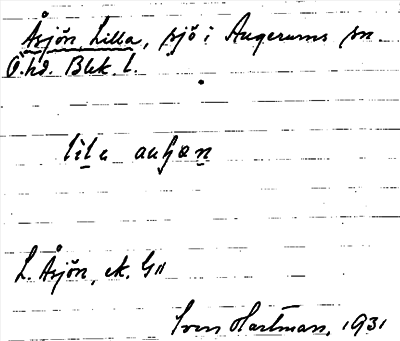 Åsjön, Lilla, sjö i Augerums sn.
Ö. hd. Blek. l.
L. Åsjön, ek. G11
Sven Hartman, 1931